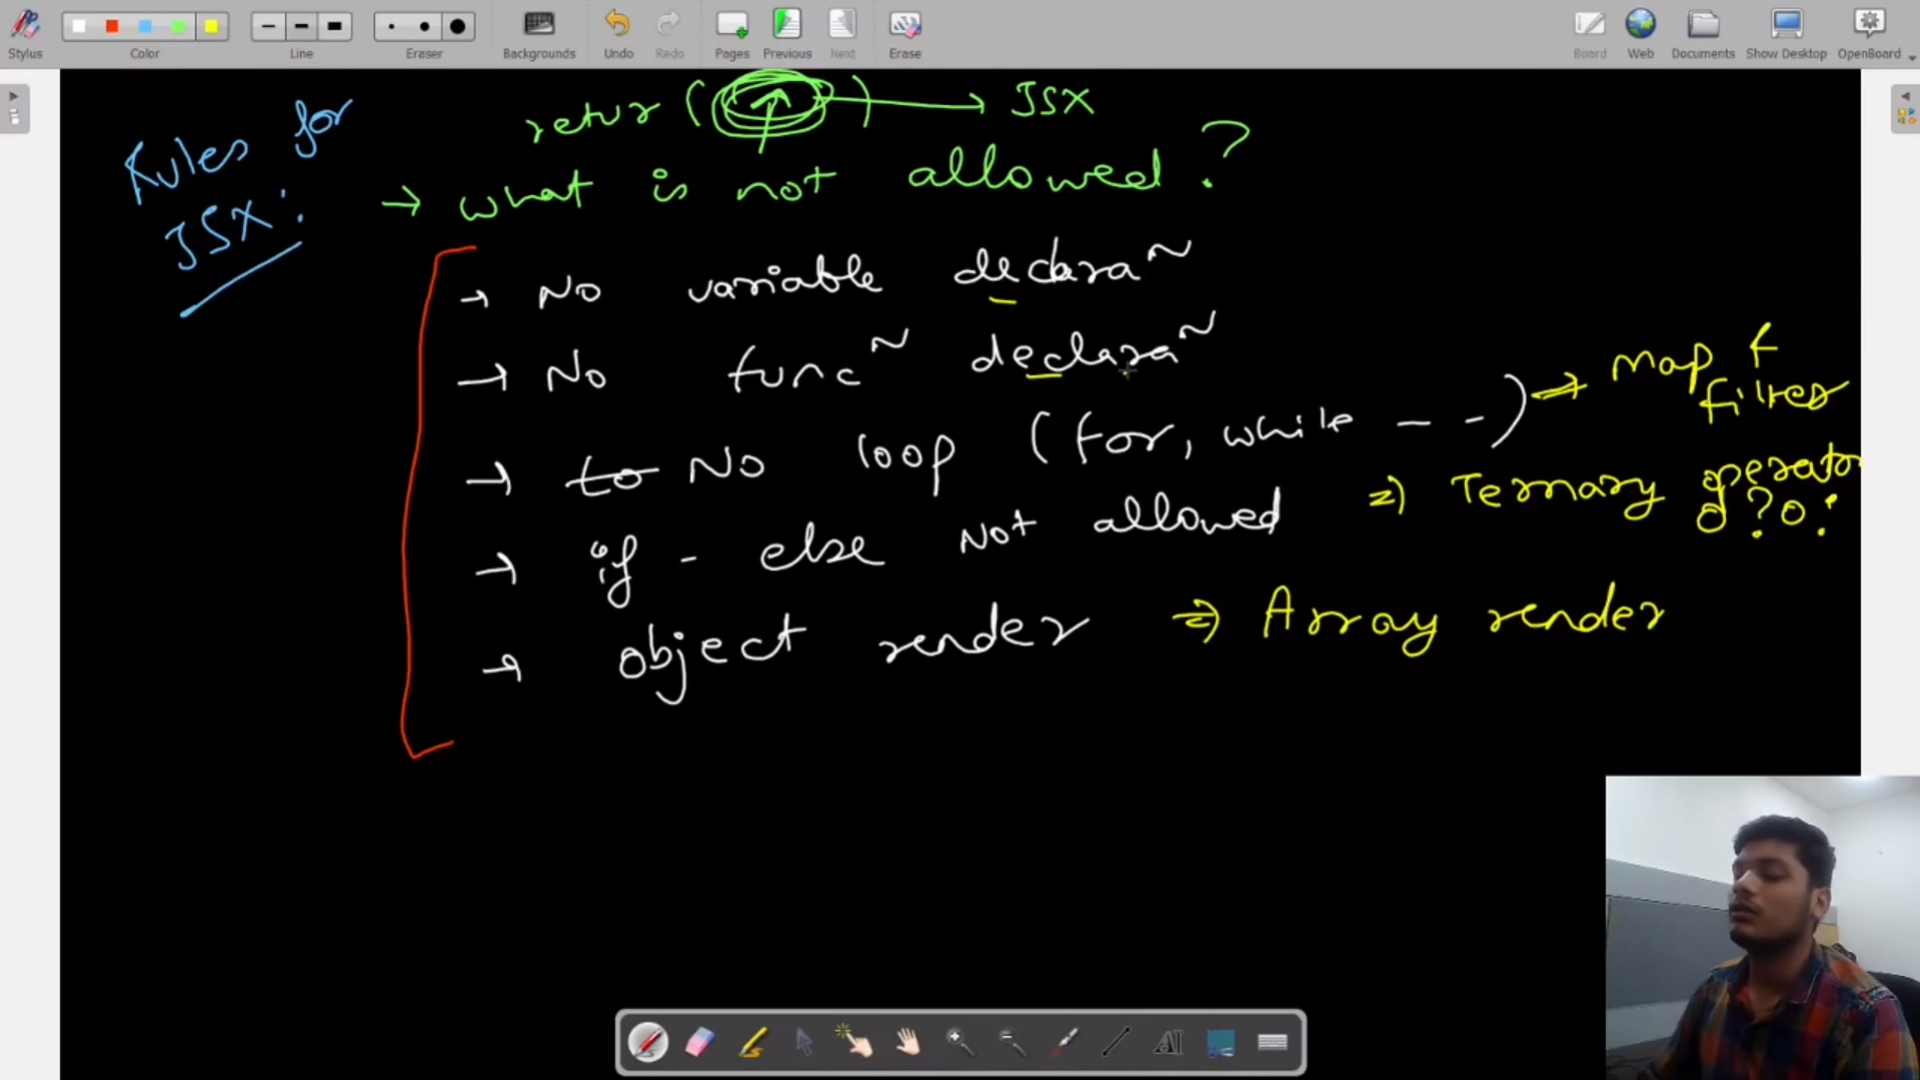 Stylus Color Line Eraser Backgrounds Undo Redo Pages Previous Next Erase Board Web Documents Show Desktop OpenBoard
Rules for
JSX:
retur ( ) → JSX
→ what is not allowed ?
→ No variable declara~
→ No func~ declara~
→ to No loop (for, while - - ) ⇒ Map f
filter
→ if - else Not allowed ⇒ Ternary operator
? :
→ object render ⇒ Array render
AI